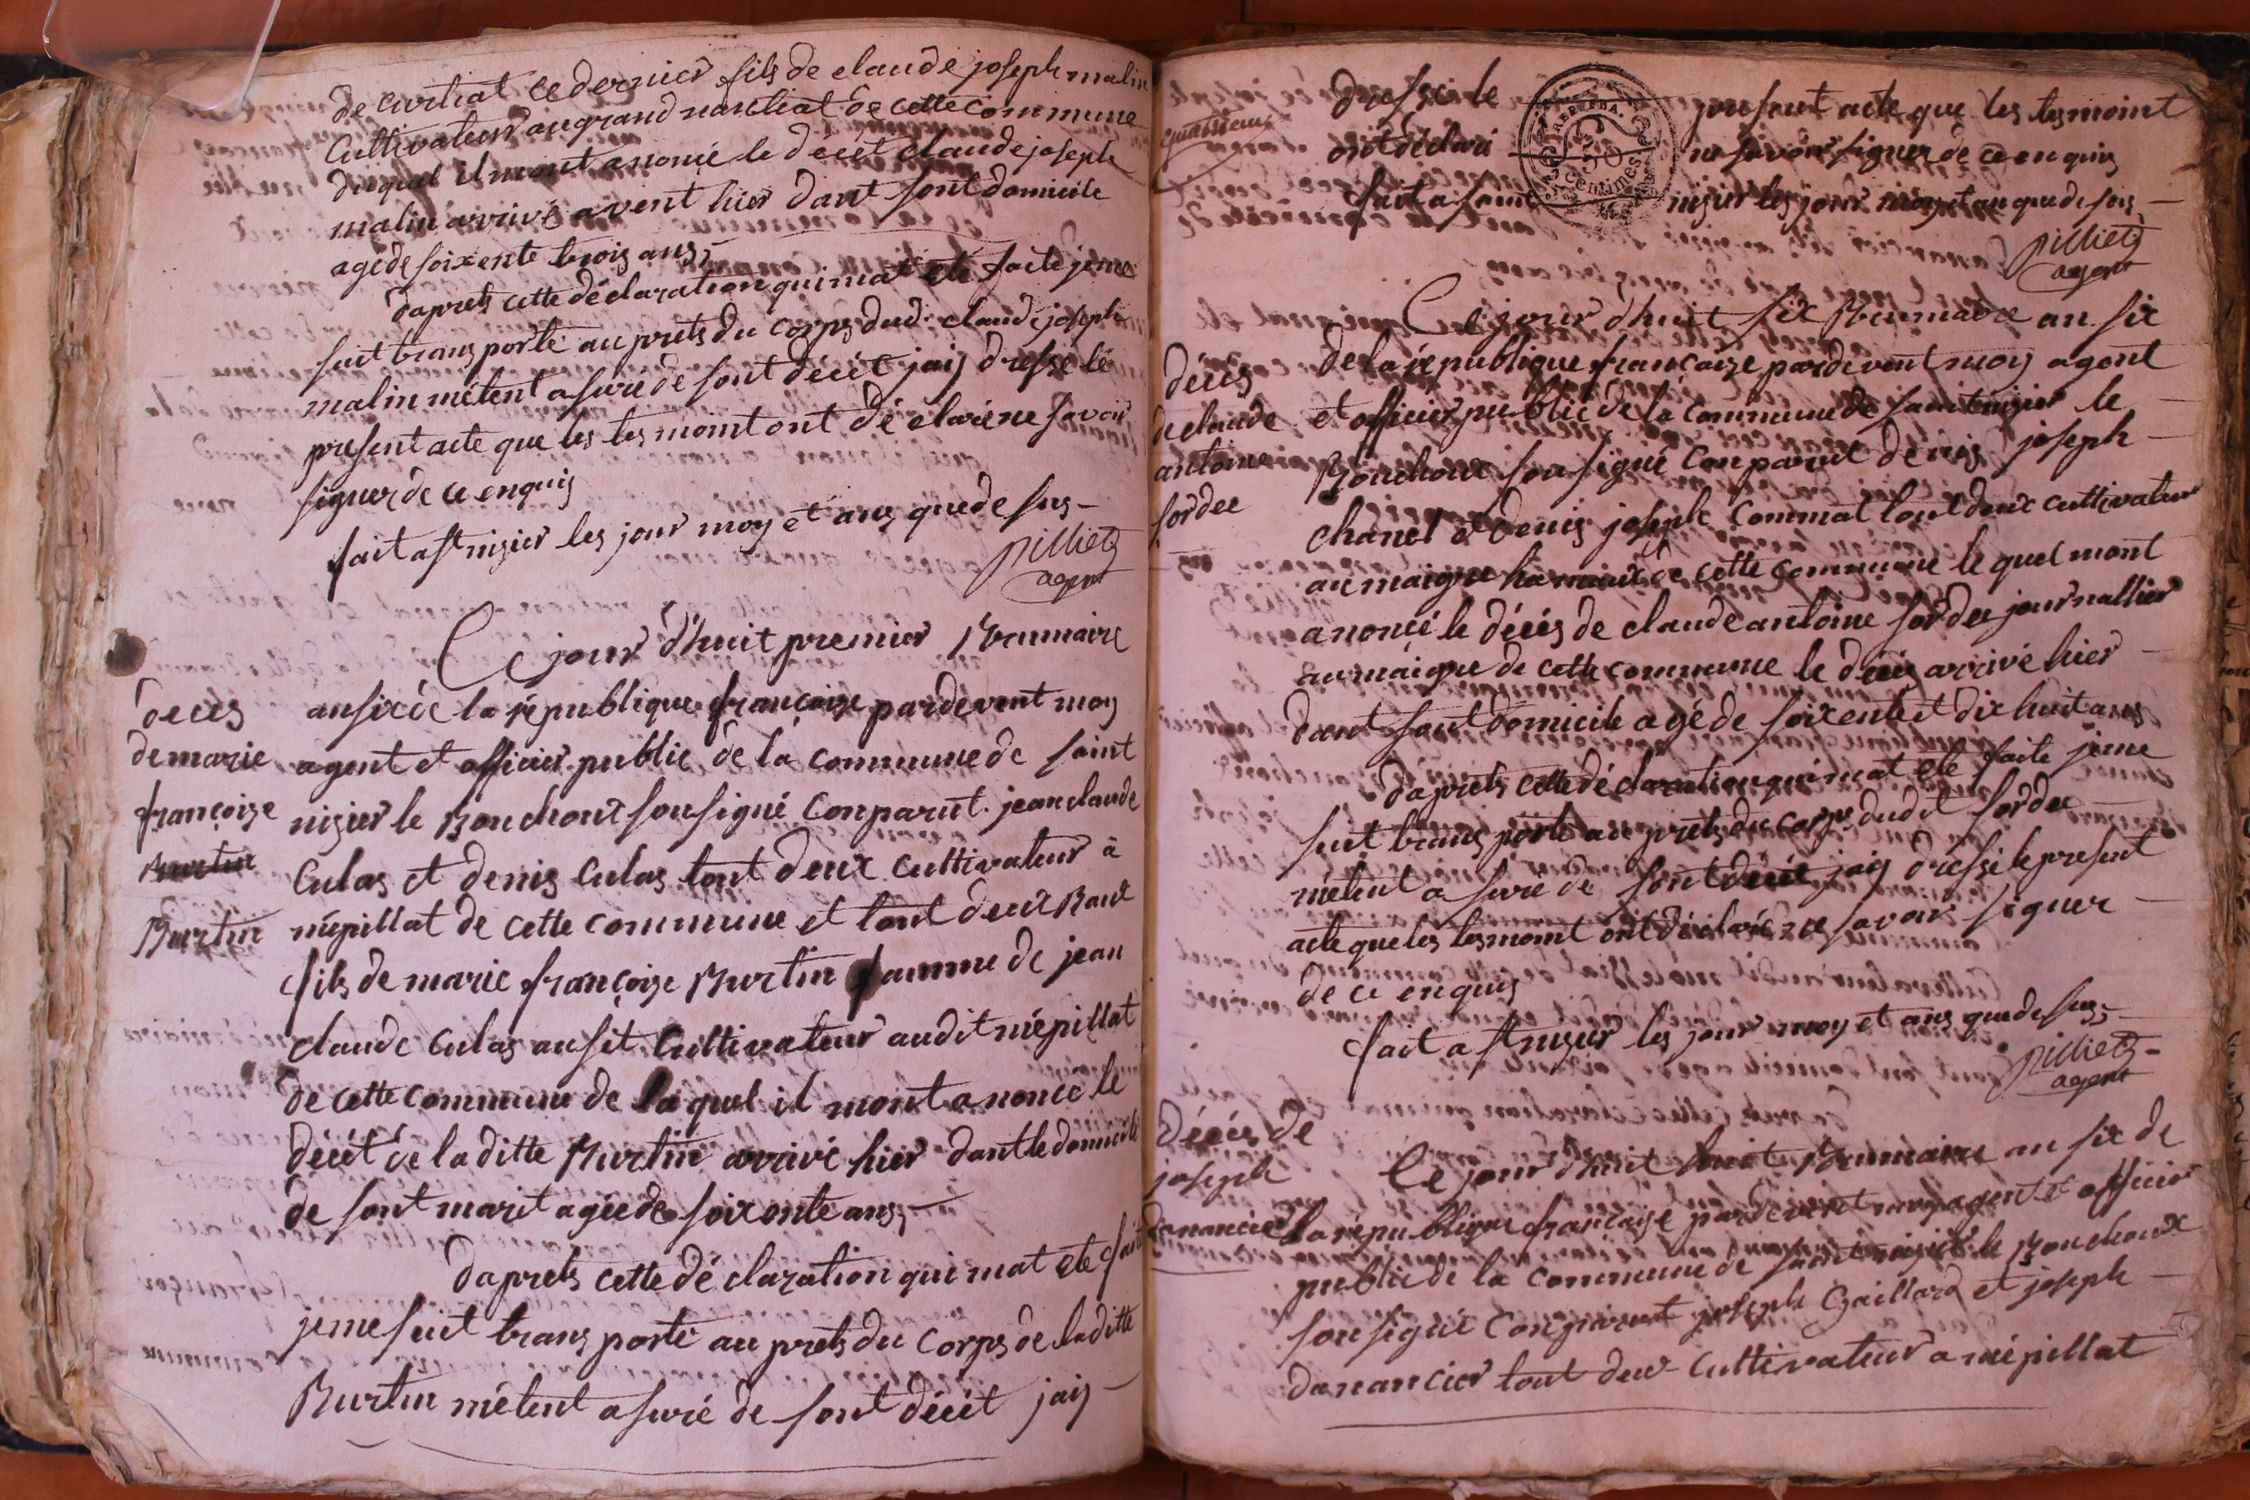 de curtiat ce dernier fils de claude joseph malin
Cultivateur au grand nantiat de cette commune
duquel il mont anoncé le décèt claude joseph
malin arrivé avent hier dant sont domicile
agé de soixente trois ans,
daprets cette déclaration qui mat eté faite jeme
suit trans porté au prets du corps dud. claude joseph
malin métent asuré de sont décèt jaij dressé le
present acte que les tesmoint ont déclaré ne savoir
signer de ce enquis
fait a st nizier les jour moy et ans que de sus
pilliet
agent
Ce jour d'huit premier Brumaire
deces
de marie
françoize
Burtin
Burtin
an six de la république françoize pardevent moy
agent et officier public de la commune de saint
nizier le Bouchoux sousigné Conparut jean claude
Culas et denis Culas tout deux cultivateur à
mépillat de cette commune et tout deux Baux
fils de marie françoize Burtin famme de jean
claude Culas ausit Cultivateur audit mépillat
de cette commune de la quel il mont anonce le
décèt de la ditte Burtin arrivé hier dant le domicile
de sont marit agée de soixente ans,
daprets cette déclaration qui mat eté fait
jeme suit trans porté au prets du corps de la ditte
Burtin métent asuré de sont décèt jaij
dressé le present acte que les tesmoint
quatrieme
ont déclaré ne savoir signer de ce enquis
fait a saint nizier les jour moy et an que de sus
REP. FRA.
50
Centimes
pilliet
agent
Ce jour d'huit six Brumaire an six
décès
de claude
antoine
sordee
de la république françaize pardevent moy agent
et officier public de la commune de saint nizier le
Bouchoux sousigné Conparut denis joseph
chanel et denis joseph Commat tout deux cultivateur
au maigre hameaux de cette commune le quel mont
anoncé le décès de claude antoine sordee journallier
au maigre de cette commune le décès arrivé hier
dant sont domicile agé de soixente et dix huit ans
daprets cette déclaration qui mat eté faite jeme
suit trans porté au prets du corps dudit sordee
métent asuré de sont décèt jaij dressé le present
acte que les tesmoint ont déclaré ne savoir signer
de ce enquis
fait a st nizier les jour moy et ans que de sus,
pilliet
agent
décès de
joseph
danancier
Ce jour d'huit huit Brumaire an six de
la république françaize pardevent moy agent et officier
public de la commune de saint nizier le Bouchoux
sousigné Conparut joseph Gaillard et joseph
danancier tout deux Cultivateur a mépillat